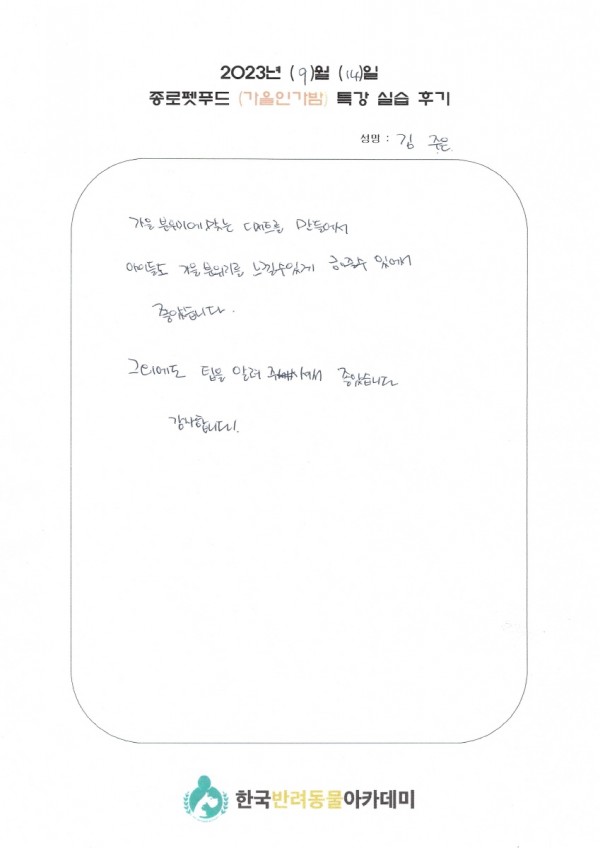 2023년 (9)월 (14)일
종로펫푸드 (가을인가밤) 특강 실습 후기
성명 : 김 주은
가을 분위기에 맞는 디저트를 만들어서
아이들도 가을 분위기를 느낄수있게 해줄수 있어서
좋았습니다.
그외에도 팁을 알려 주셔서 좋았습니다
감사합니다!
한국반려동물아카데미